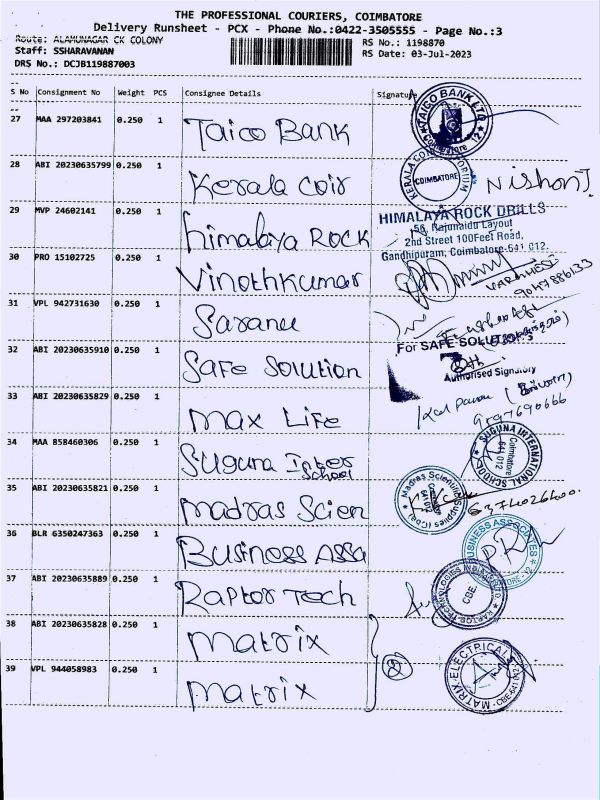 THE PROFESSIONAL COURIERS, COIMBATORE
Delivery Runsheet - PCX - Phone No.:0422-3505555 - Page No.:3
Route: ALAMUNAGAR CK COLONY
RS No.: 1198870
Staff: SSHARAVANAN
RS Date: 03-Jul-2023
DRS No.: DCJB119887003
S No Consignment No Weight PCS Consignee Details Signature
27 MAA 297203841 0.250 1 Taico Bank
TAICO BANK LTD Coimbatore
28 ABI 20230635799 0.250 1 Kerala Coir
COIMBATORE
29 MVP 24602141 0.250 1 himalaya Rock
HIMALAYA ROCK DRILLS
56, Rajunaidu Layout
2nd Street 100Feet Road,
Gandhipuram, Coimbatore-641 012.
30 PRO 15102725 0.250 1 Vinothkumar
9047886133
31 VPL 942731630 0.250 1 Saranu
32 ABI 20230635910 0.250 1 Safe Solution
For SAFE SOLUTIONS
Authorised Signatory
33 ABI 20230635829 0.250 1 max Life
34 MAA 858460306 0.250 1 Suguna Inter School
SUGUNA INTERNATIONAL SCHOOL Coimbatore 641 012
35 ABI 20230635821 0.250 1 madras Scien
Madras Scientific Supplies (Cbe)
6374026400.
36 BLR 6350247363 0.250 1 Business Assa
BUSINESS ASSOCIATES
37 ABI 20230635889 0.250 1 Raptor Tech
RAPTOR TECHNOLOGIES CBE
38 ABI 20230635828 0.250 1 matrix
2
39 VPL 944058983 0.250 1 matrix
MATRIX ELECTRICALS